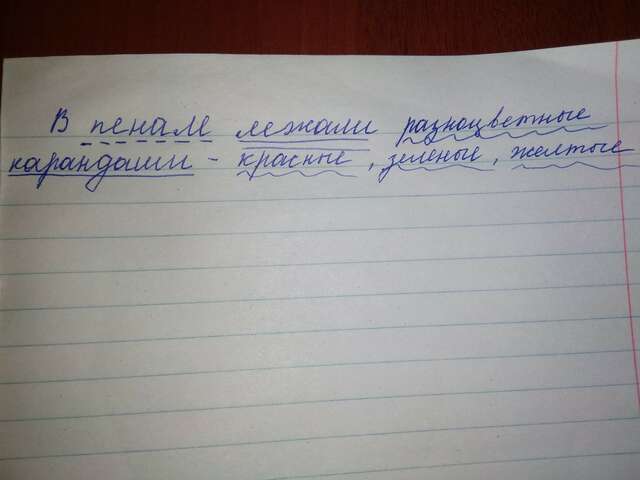 В пенал лежали разноцветные
карандаши - красные, зеленые, желтые